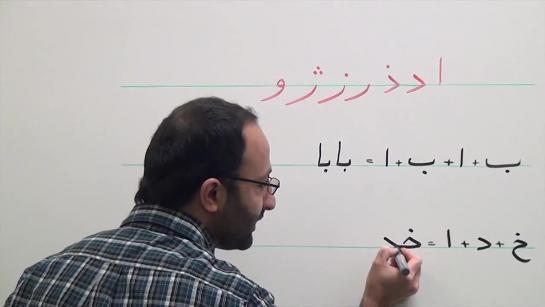 ا د ذ ر ز ژ و
ب + ا + ب + ا = بابا
خ + د + ا = خد